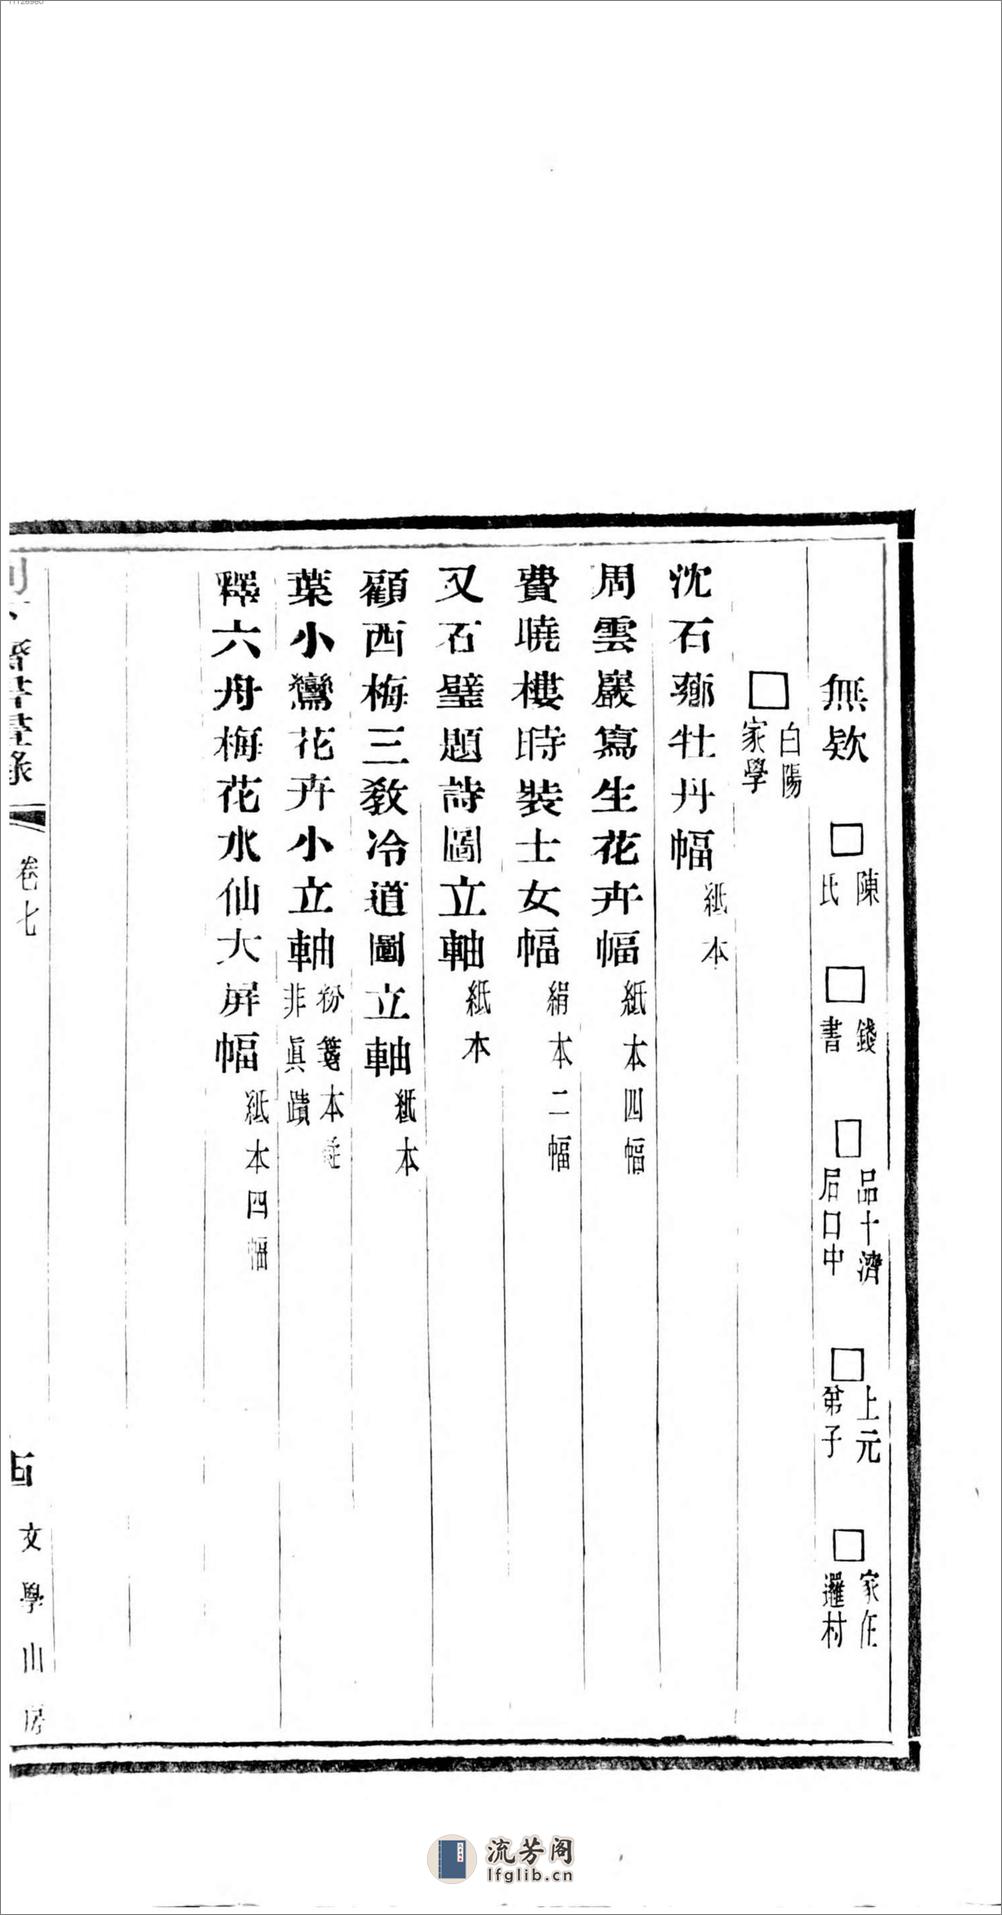 無欵 □陳氏 □錢書 □品十濟居口中 □上元弟子 □家在邏村
□白陽家學
沈石薌牡丹幅紙本
周雲巖寫生花卉幅紙本四幅
費曉樓時裝士女幅絹本二幅
又石壁題詩圖立軸紙本
顧西梅三教冷道圖立軸紙本
葉小鸞花卉小立軸粉箋本 非眞蹟
釋六舟梅花水仙大屏幅紙本四幅
齋書畫錄 卷七
文學山房
流芳阁
lfglib.cn
11128960